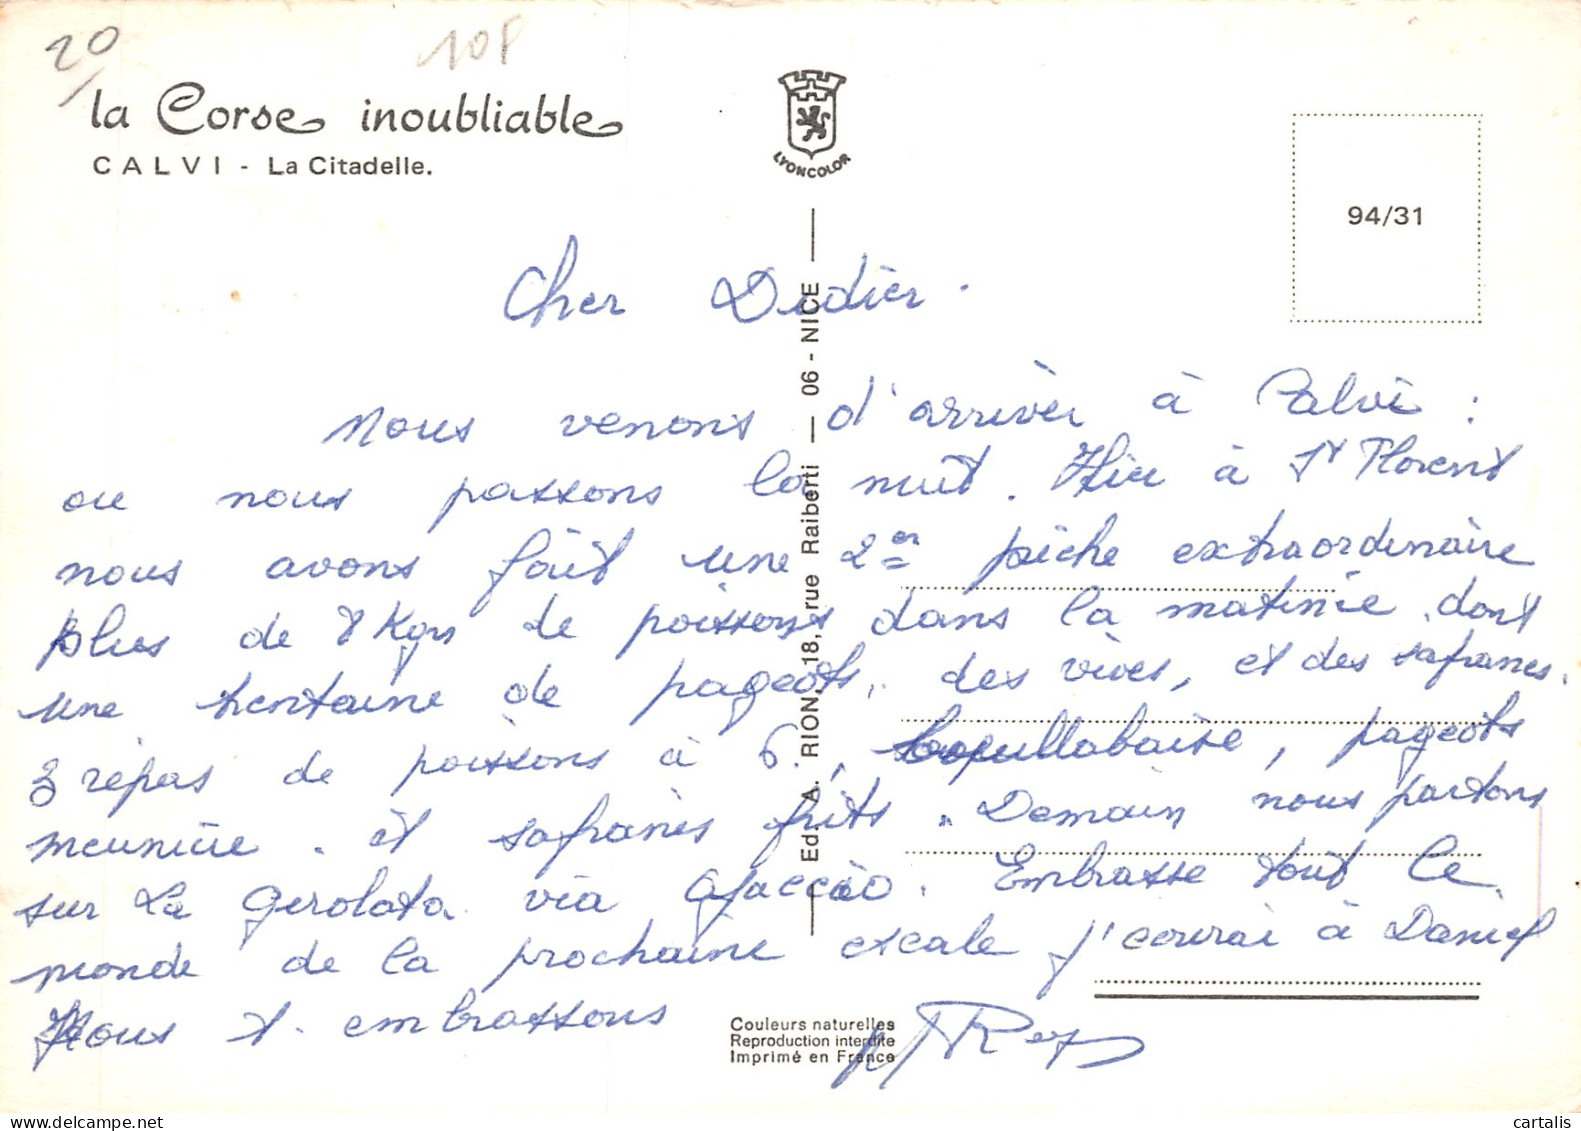 20
10F
la Corse inoubliable
CALVI - La Citadelle.
LYONCOLOR
94/31
Ed. A. RION, 18, rue Raiberti — 06 - NICE
Cher Didier.
Nous venons d'arriver à Calvi :
ou nous passons la nuit. Hier à St Florent
nous avons fait une 2er pèche extraordinaire
plus de 8 Kgrs de poissons dans la matinée. dont
une trentaine de pageots, des vives, et des safranes.
3 repas de poissons à 6., pageots
meunière. et safranes frits. Demain nous partons
sur La Gerolata via Ajaccio. Embrasse tout le
monde de la prochaine escale j'écourai à Daniel
Nous t. embrassons
Couleurs naturelles
Reproduction interdite
Imprimé en France
cartalis